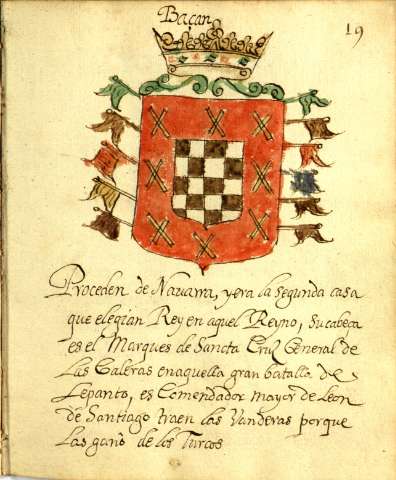 Baçan
19
Proceden de Nauarra, y era la segunda casa
que elegian Rey en aquel Reyno, su cabeça
es el Marques de Sancta Cruz General de
las Galeras en aquella gran batalla de
Lepanto, es Comendador mayor de Leon
de Santiago traen las Vanderas porque
las ganò de los Turcos